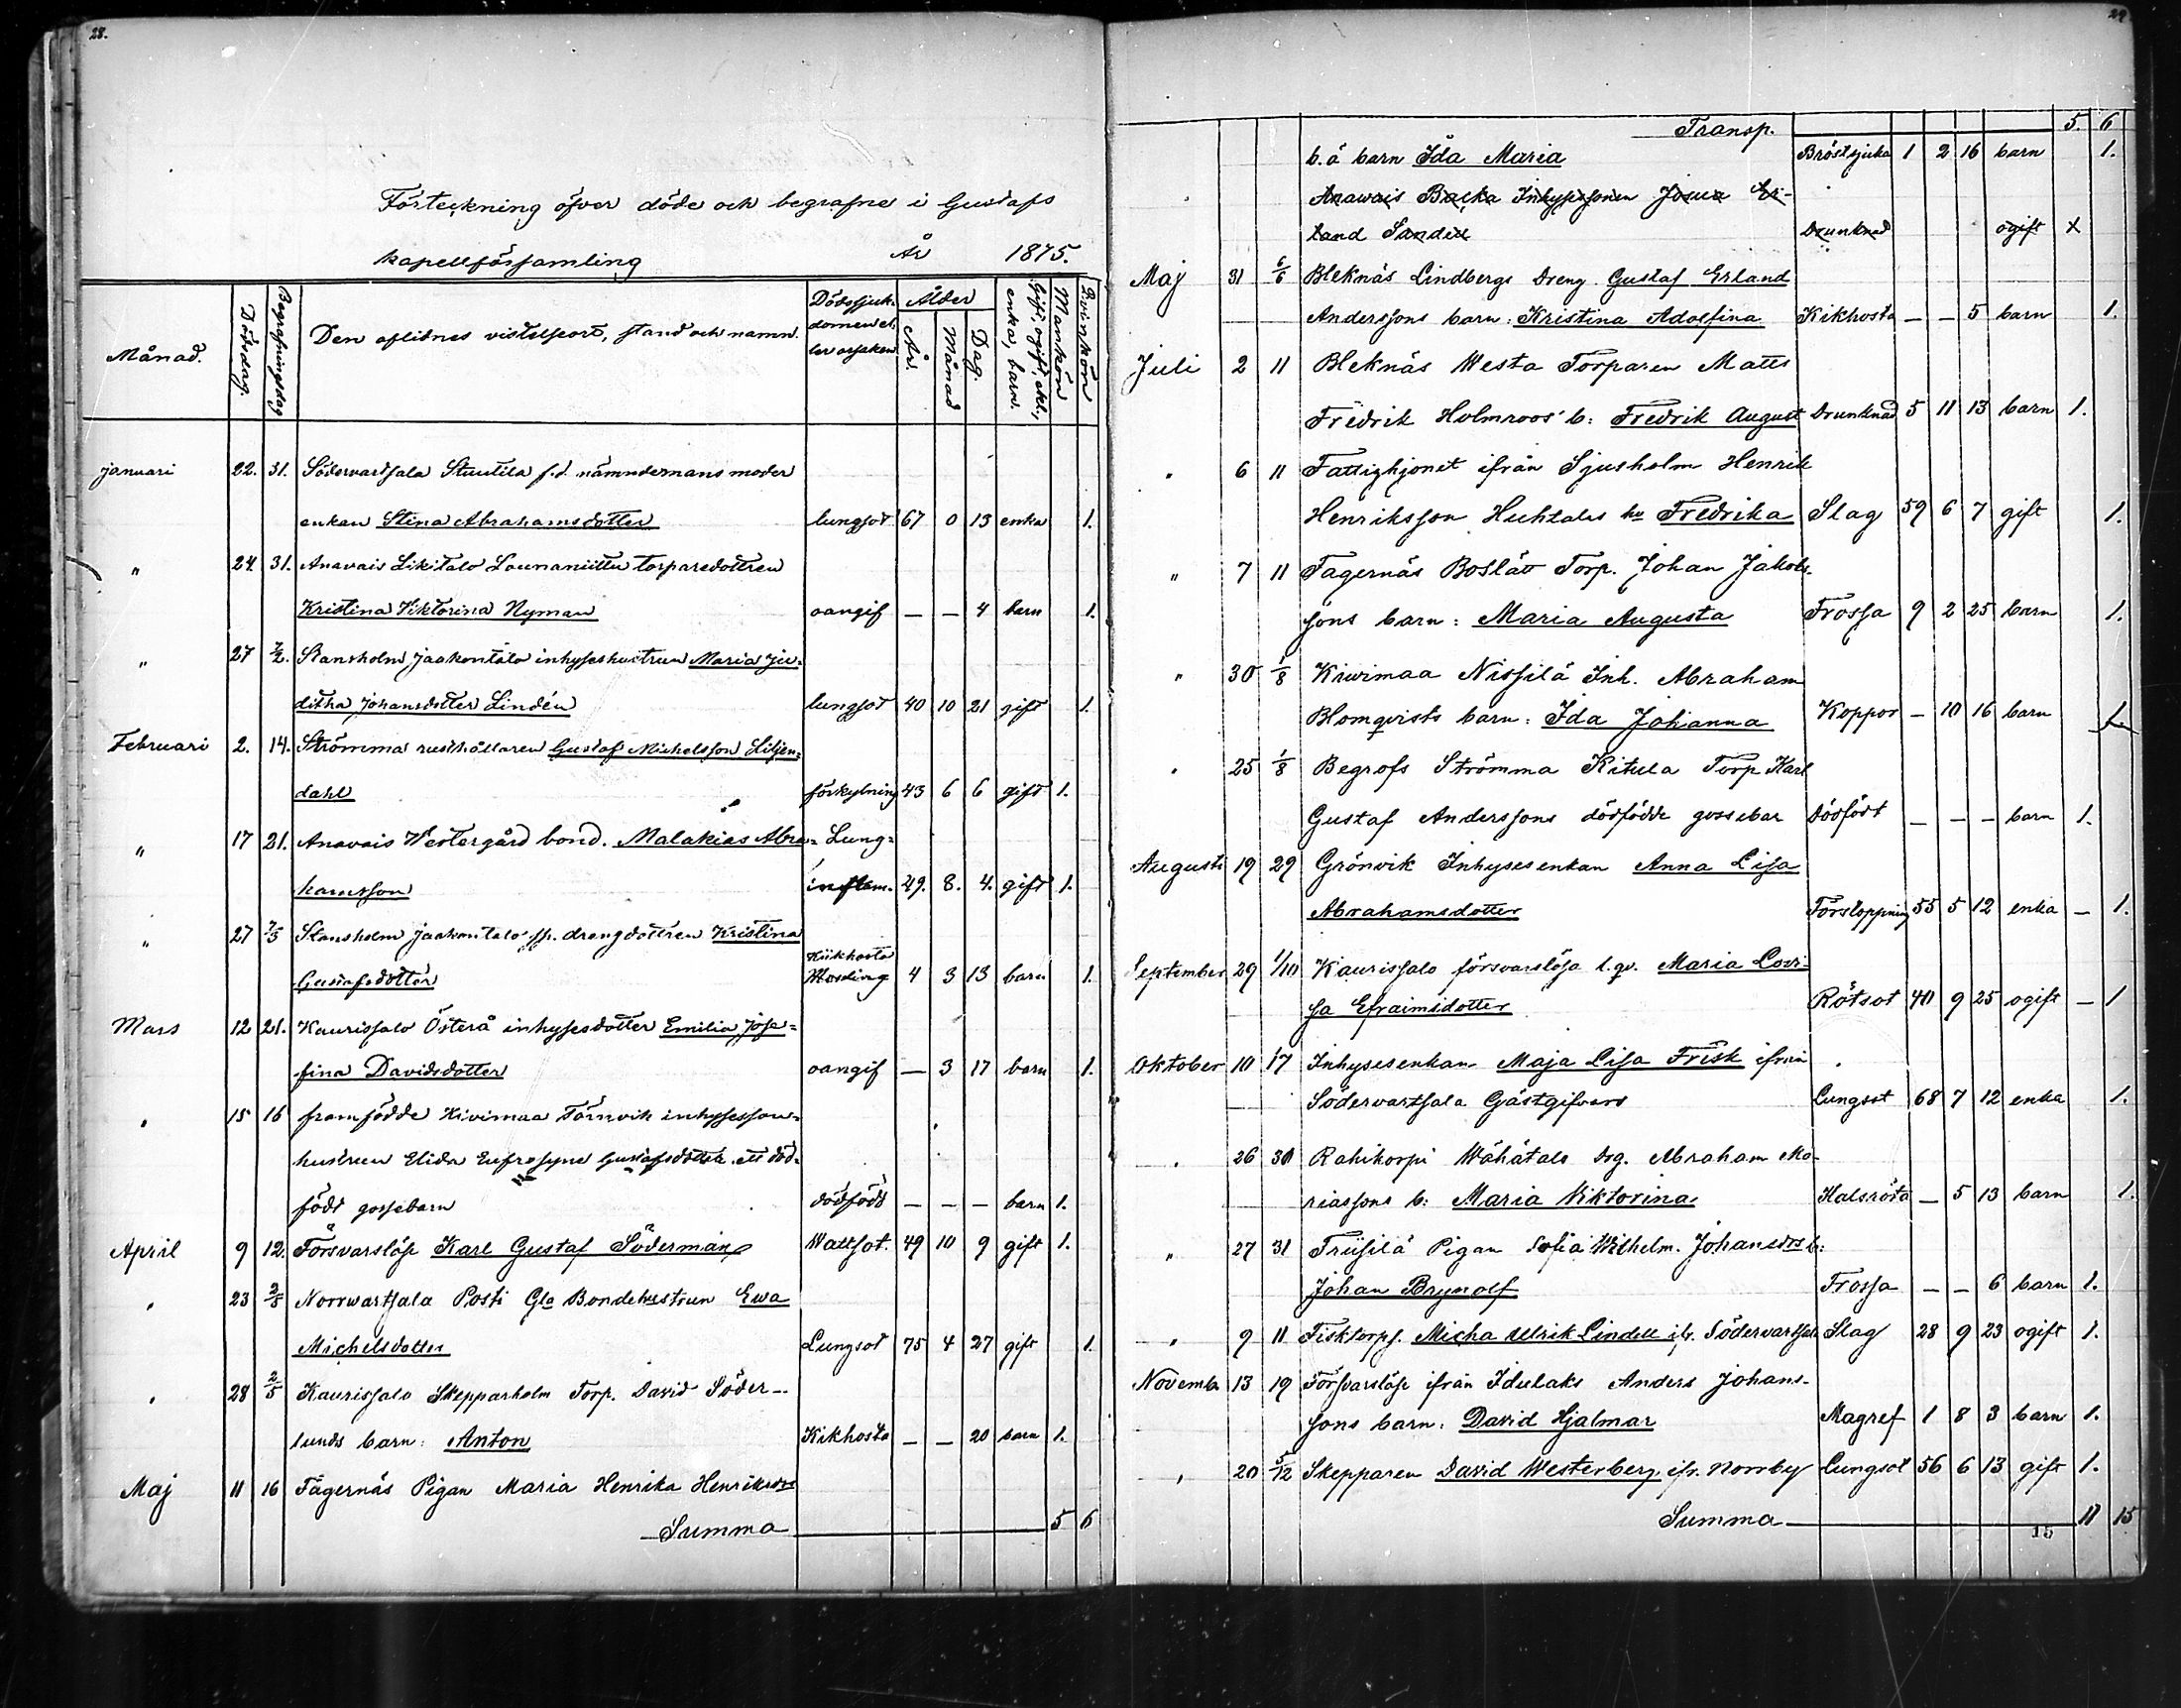 28.
Förteckning öfver döde och begrafne i Gustafs
kapellförsamling År 1875.
Månad. Dödsdag. Begrafningsdag Den aflidnes vistelseort, stand och namn. Dödssjukdomen eller orsaken Ålder År. Månad Dag. Gift, ogift, enkl., enka, barn. Mankön Qvinkön
Januari 22. 31. Södervartsala Stuutila f.d. nämndemans moder
enkan Stina Abrahamsdotter lungsot 67 0 13 enka 1.
" 24 31. Anavais Likitalo Lounaniittu torparedottren
Kristina Viktorina Nyman oangif — — 4 barn 1.
" 27 7/2. Slansholm Jaakontalo inhyseshustrun Maria Ju-
ditha Johansdotter Lindén lungsot 40 10 21 gift 1.
Februari 2. 14. Strömma rusthållaren Gustaf Michelsson Liljen-
dahl förkylning 43 6 6 gift 1.
" 17 21. Anavais Westergård bond. Malakias Abra- Lung-
hamsson inflam. 49. 8. 4. gift 1.
" 27 7/3 Slansholm Jaakontalo drengdottren Kristina
Gustafsdotter Kikhosta Messling 4 3 13 barn 1.
Mars 12 21. Kaurissalo Österå inhysesdotter Emilia Jose-
fina Davidsdotter oangif — 3 17 barn 1.
" 15 16 framfödde Kivimaa Törnvik inhyseson-
hustrun Elida Eufrosyne Gustafsdotter ett död-
född gossebarn dödfödd — — — barn 1.
April 9 12. Försvarslöse Karl Gustaf Söderman Wattsot. 49 10 9 gift 1.
" 23 2/5 Norrvartsala Posti Gla Bondehustrun Ewa
Michelsdotter Lungsot 75 4 27 gift 1.
" 28 2/5 Kaurissalo Skepparholm Torp. David Söder-
lunds barn: Anton Kikhosta — — 20 barn 1.
Maj 11 16 Fagernäs Pigan Maria Henrika Henriksdrs
Summa 5 6
29
Transp. 5. 6
b. ä barn Ida Maria Bröstsjuka 1 2 16 barn 1.
Anawais Backa Inhysessonen Josua Er-
land Sandell Drunknad ogift x
Maj 31 6/6 Bleknäs Lindbergs Dreng Gustaf Erland
Anderssons barn: Kristina Adolfina Kikhosta — — 5 barn 1.
Juli 2 11 Bleknäs Westa Torparen Matts
Fredrik Holmroos' b: Fredrik August Drunknad 5 11 13 barn 1.
" 6 11 Fattighjonet ifrån Sjusholm Henrik
Henriksson Huhtalas hu Fredrika Slag 59 6 7 gift 1.
" 7 11 Fagernäs Boslätt Torp. Johan Jakobs-
sons barn: Maria Augusta Frossa 9 2 25 barn 1.
" 30 1/8 Kiwimaa Nissilä Inh. Abraham
Blomqvists barn: Ida Johanna Koppor — 10 16 barn 1.
" 25 1/8 Begrofs Strömma Kitula Torp Karl
Gustaf Anderssons dödfödde gossebar Dödfödt — — — barn 1.
Augusti 19 29 Grönvik Inhysesenkan Anna Lisa
Abrahamsdotter Förstoppning 55 5 12 enka — 1.
September 29 1/10 Kaurissalo försvarslösa l.qv. Maria Lovi-
sa Efraimsdotter Rötsot 40 9 25 ogift — 1
Oktober 10 17 Inhysesenkan Maja Lisa Frisk ifrån
Södervartsala Gästgifvars Lungsot 68 7 12 enka 1.
" 26 30 Rahikorpi Wähätalo Drg. Abraham Ma-
riassons b: Maria Viktorina Halsröta — 5 13 barn 1.
" 27 31 Friisilä Pigan Sofia Wilhelm. Johansdrs b:
Johan Brynolf Frossa — — 6 barn 1.
" 9 11 Fisktorps. Micha Ulrik Lindell ifr. Södervartsala Slag 28 9 23 ogift 1.
November 13 19 Försvarslöse ifrån Idulaks Anders Johans-
sons barn: David Hjalmar Magref 1 8 3 barn 1.
" 20 5/12 Skepparen David Westerberg ifr. Norrby Lungsot 56 6 13 gift 1.
Summa 11 15
15